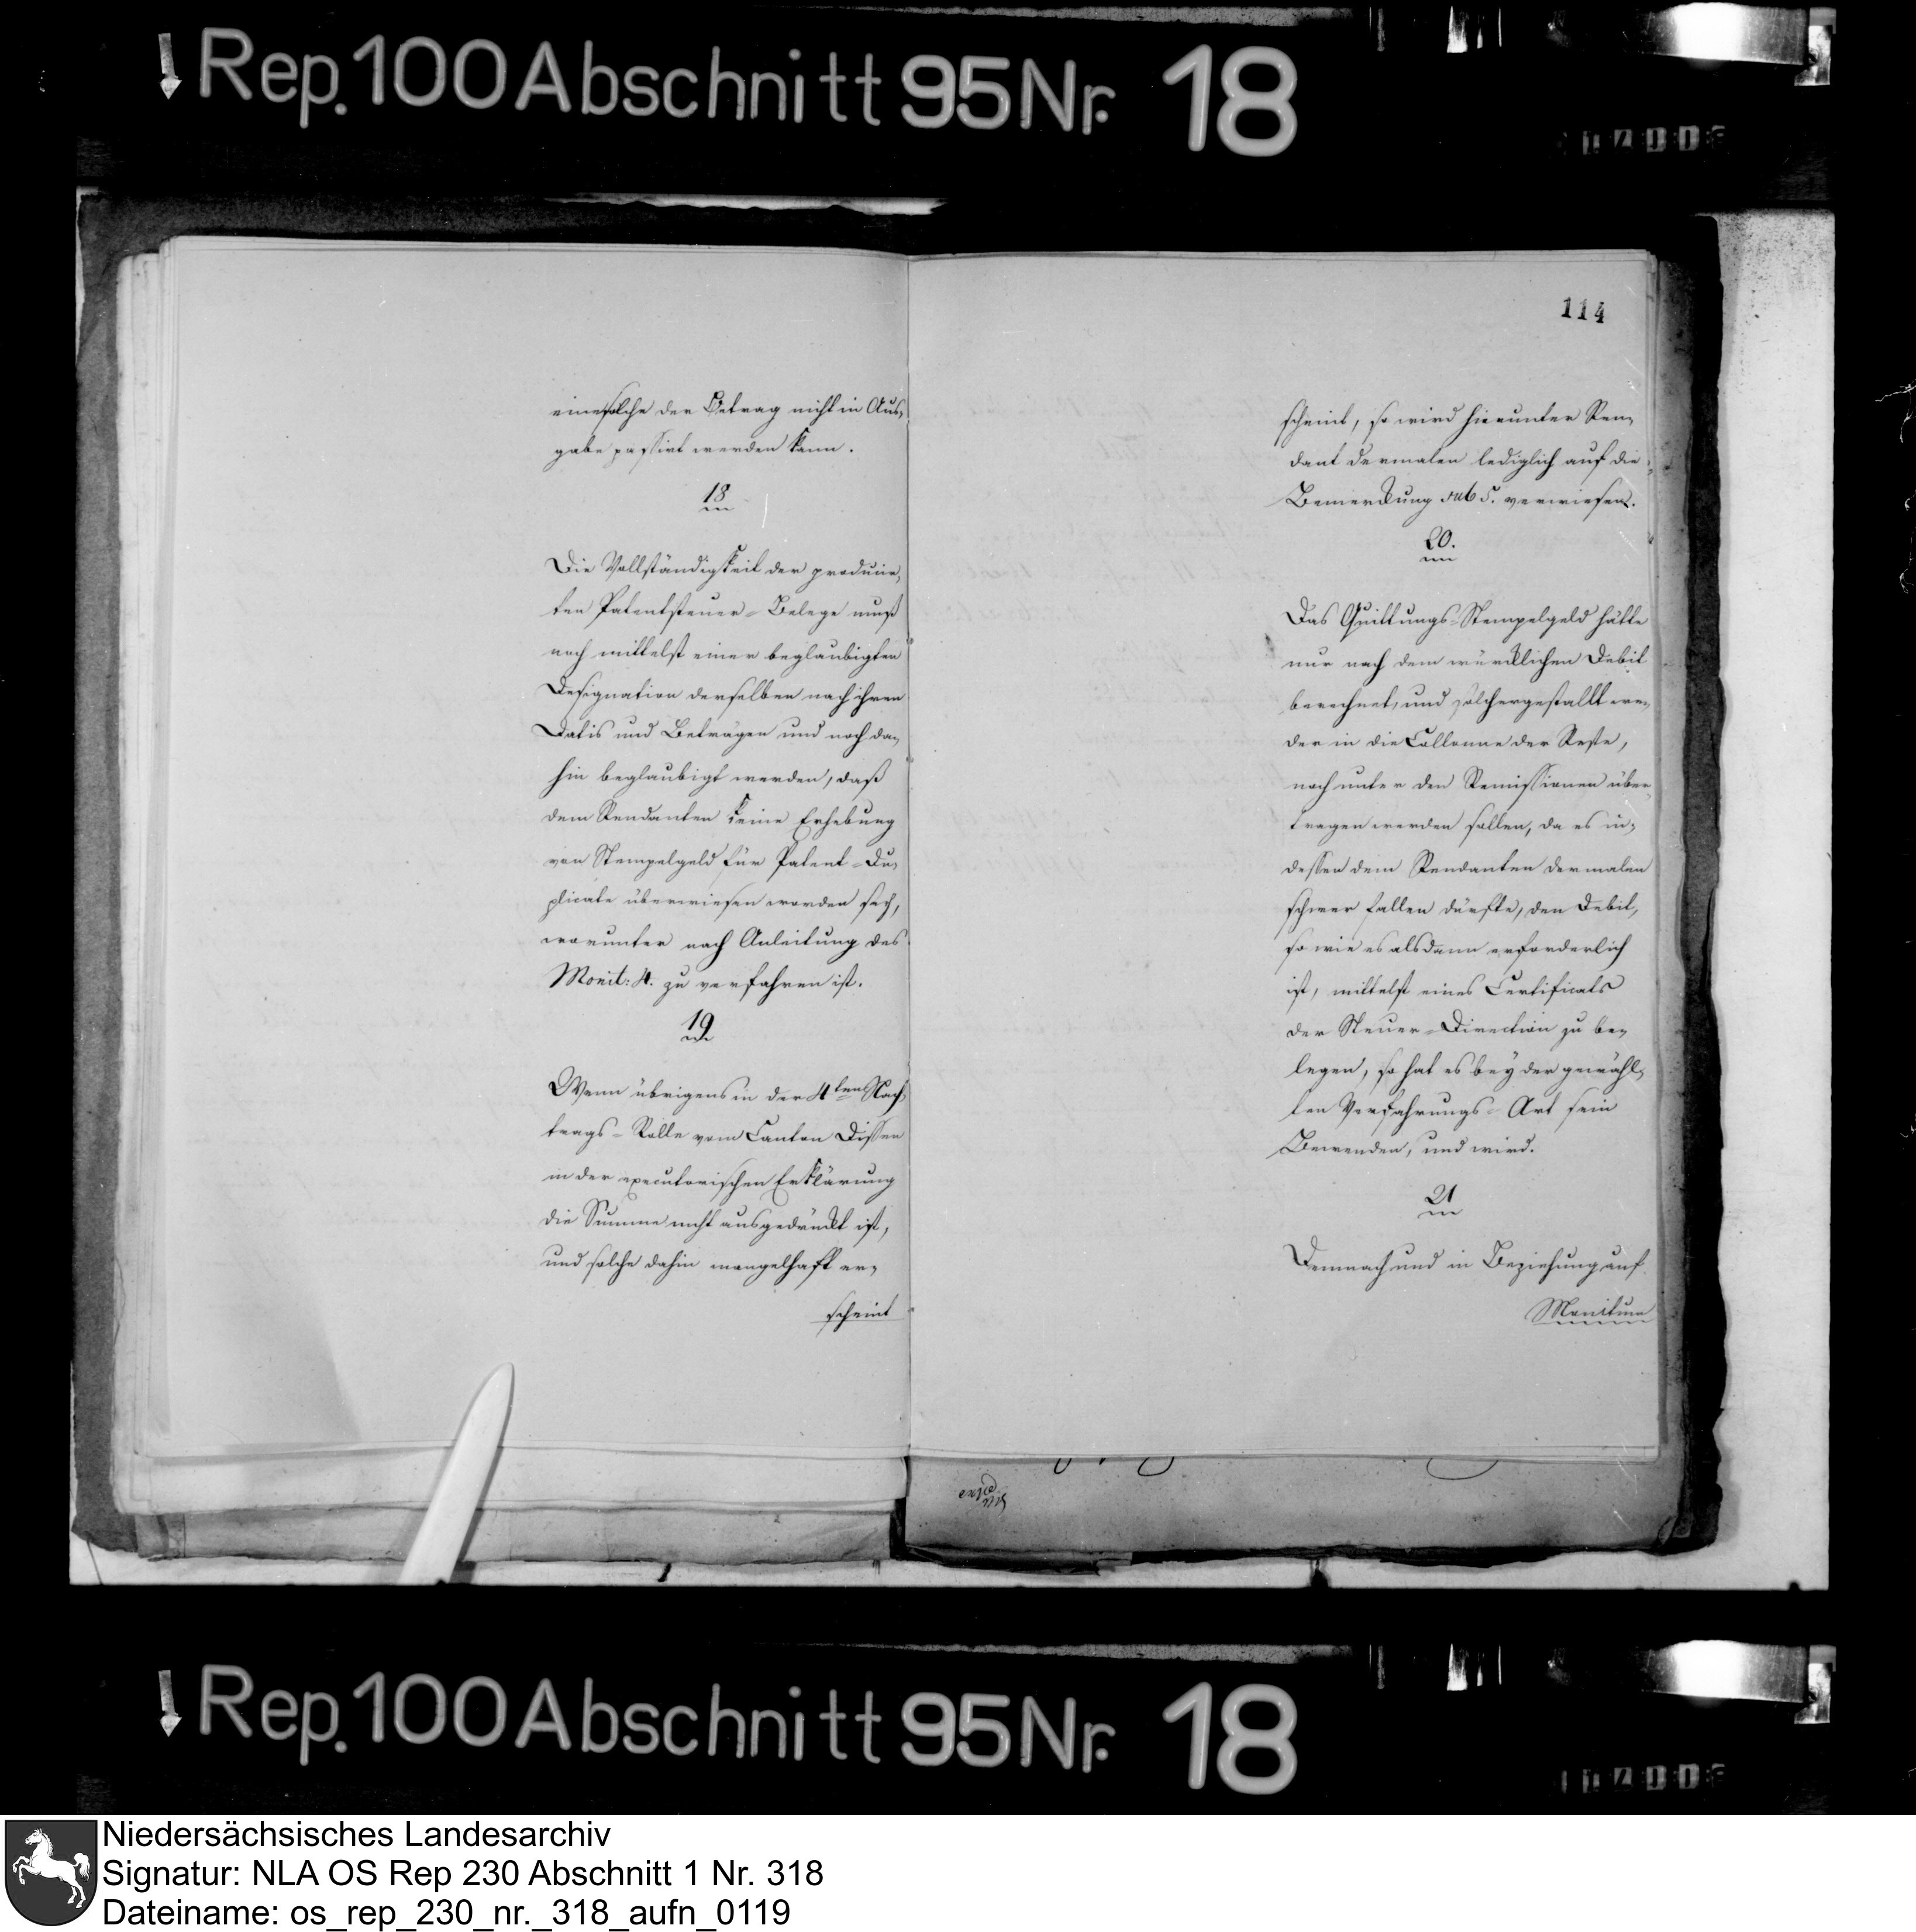 Rep. 100 Abschnitt 95 Nr. 18
eine solche der Betrag nicht in Aus-
gabe passirt werden kann.
18
Die Vollständigkeit der producir-
ten Patentsteuer-Belege muß
noch mittelst einer beglaubigten
Designation derselben nach ihren
Datis und Beträgen und noch da-
hin beglaubigt werden, daß
dem Rendanten keine Erhebung
von Stempelgeld für Patent-Du-
plicate überwiesen worden sey,
worunter nach Anleitung des
Monit: 4. zu verfahren ist.
19
Wenn übrigens in der 4ten Nach-
trags-Rolle vom Canton Dissen
in der executorischen Erklärung
die Summe nicht ausgedrückt ist,
und solche dahin mangelhaft er-
scheint
114
scheint, so wird hierunter Ren-
dant dermalen lediglich auf die
Bemerckung sub 5. verwiesen.
20.
Das Quittungs-Stempelgeld hätte
nur nach dem würcklichen Debit
berechnet, und solchergestallt we-
der in die Collonne der Reste,
noch unter den Remissionen über-
tragen werden sollen, da es in-
dessen dem Rendanten dermalen
schwer fallen dürfte, den Debit,
so wie es alsdann erforderlich
ist, mittelst eines Certificats
der Steuer-Direction zu be-
legen, so hat es bey der gewähl-
ten Verfahrungs-Art sein
Bewenden, und wird.
21
Demnach und in Beziehung auf
Monitum
Rep. 100 Abschnitt 95 Nr. 18
Niedersächsisches Landesarchiv
Signatur: NLA OS Rep 230 Abschnitt 1 Nr. 318
Dateiname: os_rep_230_nr._318_aufn_0119